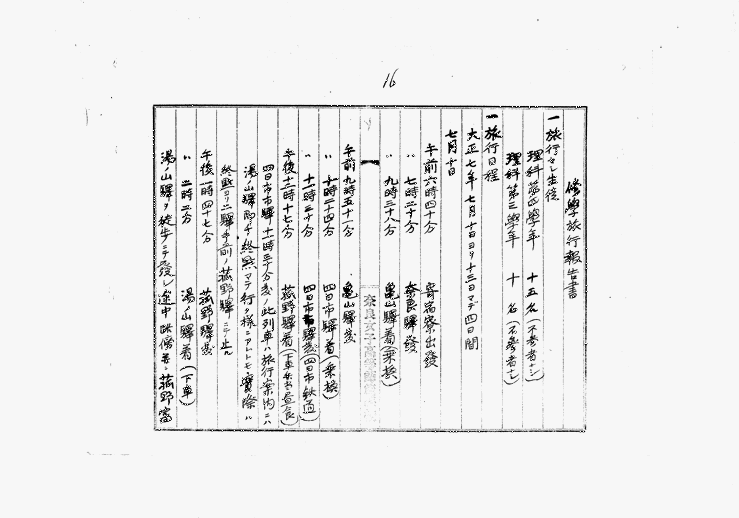 16
修學旅行報告書
一 旅行セシ生徒
理科第四學年 十五名(不參者ナシ)
理科第三學年 十 名(不參者ナシ)
一 旅行日程
大正七年七月十日ヨリ十三日マデ四日間
七月十日
午前六時四十分 寄宿寮出發
〃 七時二十分 奈良驛發
〃 九時三十八分 亀山驛着(乗換)
奈良女子高等師範學校
午前九時五十一分 亀山驛發
〃 十時二十四分 四日市驛着(乗換)
〃 十一時三十分 四日市驛發(四日市鉄道)
午後十二時十七分 菰野驛着(下車
四日市市驛十一時三十分發ノ此列車ハ旅行案内ニハ
湯ノ山驛即チ終點マデ行ク様ニアレトモ實際ハ
終點ヨリ二驛手前ノ菰野驛ニテ止ル
午後一時四十七分 菰野驛發
〃 二時二分 湯ノ山驛着(下車)
湯ノ山驛ヲ徒歩ニテ發シ途中 菰野富